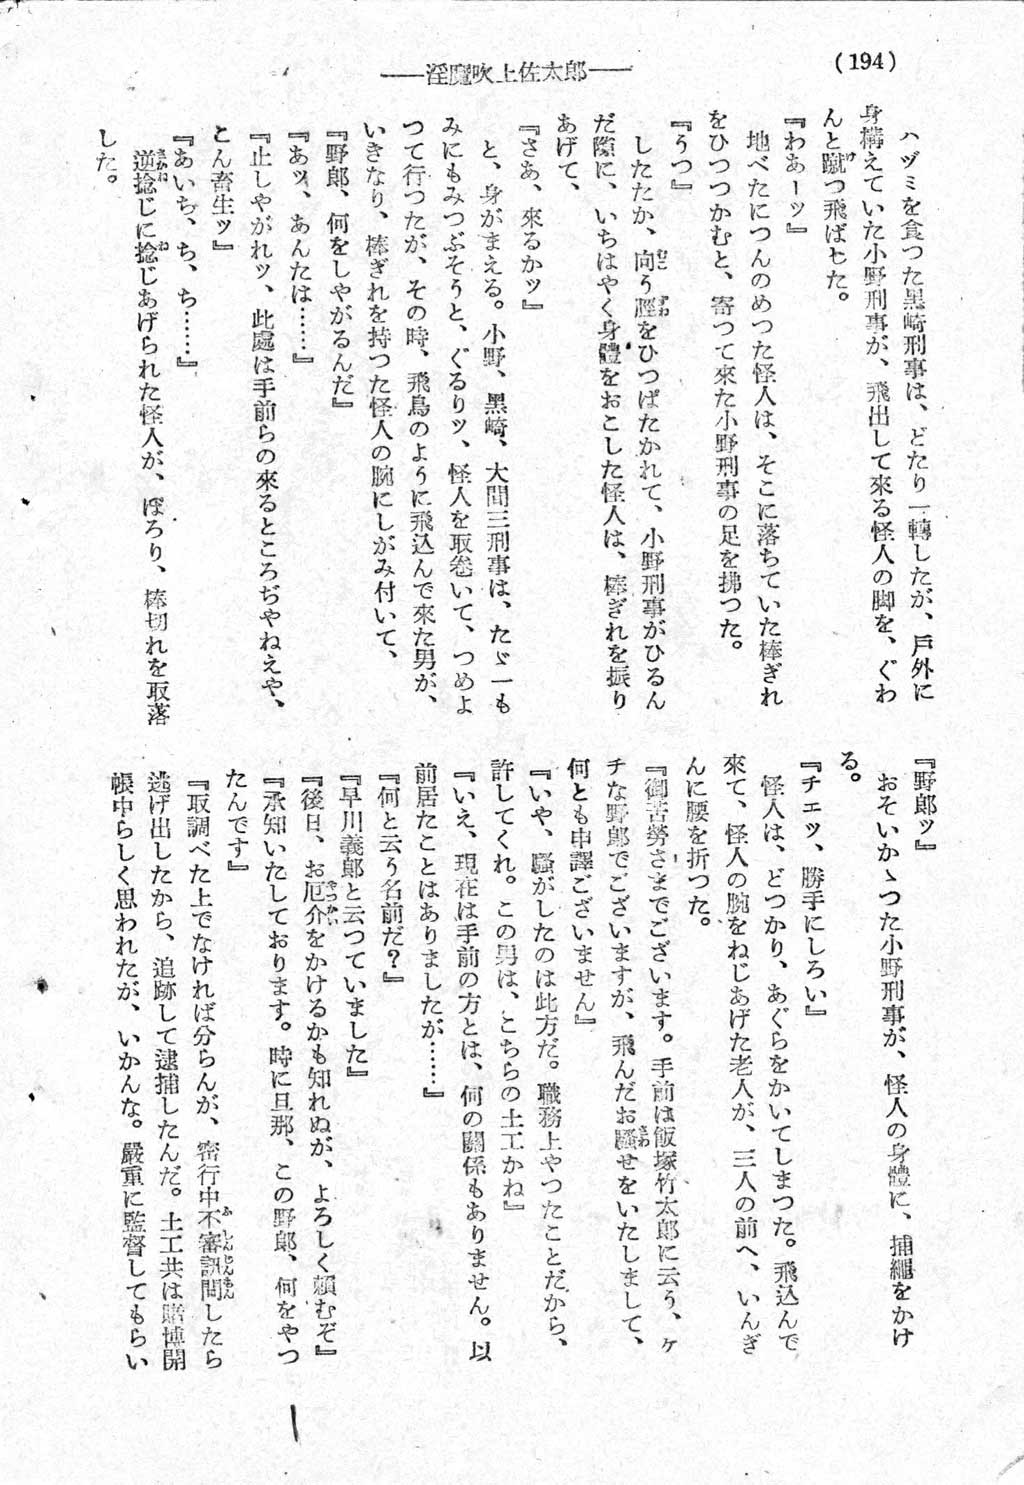 (194)
――淫魔吹上佐太郎――
ハヅミを食つた黒崎刑事は、どたり一轉したが、戸外に
身構えていた小野刑事が、飛出して來る怪人の脚を、ぐわ
んと蹴つ飛ばした。
『わあーッ』
地べたにつんのめつた怪人は、そこに落ちていた棒ぎれ
をひつつかむと、寄つて来た小野刑事の足を拂つた。
『うつ』
したたか、向う脛をひつぱたかれて、小野刑事がひるん
だ隙に、いちはやく身體をおこした怪人は、棒ぎれを振り
あげて、
『さあ、來るかッ』
と、身がまえる。小野、黒崎、大間三刑事は、たゞ一も
みにもみつぶそうと、ぐるりッ、怪人を取巻いて、つめよ
つて行つたが、その時、飛鳥のように飛込んで來た男が、
いきなり、棒ぎれを持つた怪人の腕にしがみ付いて、
『野郎、何をしやがるんだ』
『あッ、あんたは……』
『止しやがれッ、此處は手前らの來るところぢやねえや、
こん畜生ッ』
『あいち、ち、ち……』
逆捻じに捻じあげられた怪人が、ぽろり、棒切れを取落
した。
『野郎ッ』
おそいかゝつた小野刑事が、怪人の身體に、捕繩をかけ
る。
『チエッ、勝手にしろい』
怪人は、どつかり、あぐらをかいてしまつた。飛込んで
來て、怪人の腕をねじあげた老人が、三人の前へ、いんぎ
んに腰を折つた。
『御苦勞さまでございます。手前は飯塚竹太郎に云う、ケ
チな野郎でございますが、飛んだお騷せをいたしまして、
何とも申譯ございません』
『いや、騷がしたのは此方だ。職務上やつたことだから、
許してくれ。この男は、こちらの土工かね』
『いえ、現在は手前の方とは、何の關係もありません。以
前居たことはありましたが……』
『何と云う名前だ？』
『早川義郎と云つていました』
『後日、お厄介をかけるかも知れぬが、よろしく頼むぞ』
『承知いたしております。時に旦那、この野郎、何をやつ
たんです』
『取調べた上でなければ分らんが、密行中不審訊問したら
逃げ出したから、追跡して逮捕したんだ。土工共は賭博開
帳中らしく思われたが、いかんな。嚴重に監督してもらい